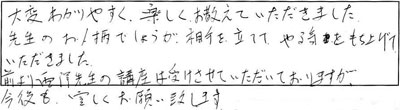 大変わかりやすく、楽しくお教えていただきました。
先生のお人柄でしょうが、相手を立てて、やる気をもち上げて
いただきました。
前より西洋先生の講座は受けさせていただいておりますが、
今後も、宜しくお願い致します。